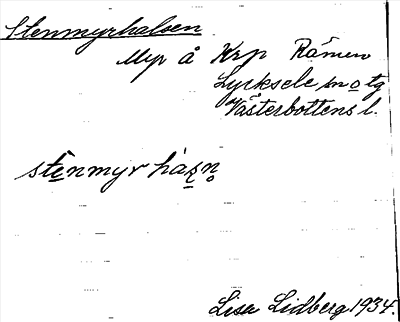 Stenmyrhalsen
Myr å Krp Råmen
Lycksele sn o tg
Västerbottens l.
stenmyr hásn
Lisa Lidberg 1934.